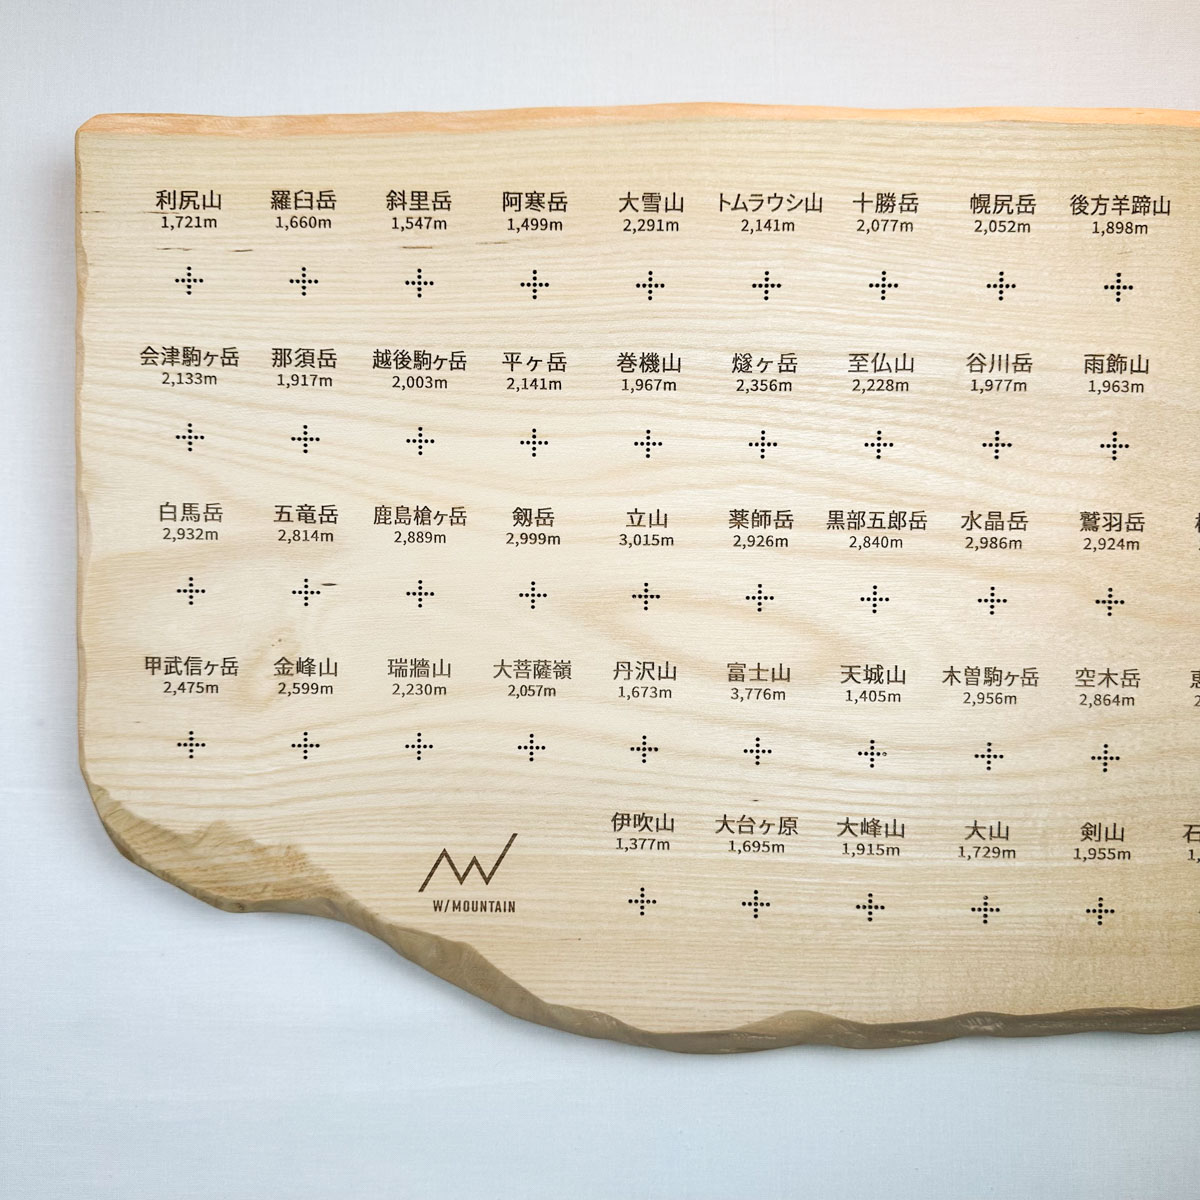 利尻山 羅臼岳 斜里岳 阿寒岳 大雪山 トムラウシ山 十勝岳 幌尻岳 後方羊蹄山
1,721m 1,660m 1,547m 1,499m 2,291m 2,141m 2,077m 2,052m 1,898m
会津駒ヶ岳 那須岳 越後駒ヶ岳 平ヶ岳 巻機山 燧ヶ岳 至仏山 谷川岳 雨飾山
2,133m 1,917m 2,003m 2,141m 1,967m 2,356m 2,228m 1,977m 1,963m
白馬岳 五竜岳 鹿島槍ヶ岳 剱岳 立山 薬師岳 黒部五郎岳 水晶岳 鷲羽岳
2,932m 2,814m 2,889m 2,999m 3,015m 2,926m 2,840m 2,986m 2,924m
甲武信ヶ岳 金峰山 瑞牆山 大菩薩嶺 丹沢山 富士山 天城山 木曽駒ヶ岳 空木岳
2,475m 2,599m 2,230m 2,057m 1,673m 3,776m 1,405m 2,956m 2,864m
伊吹山 大台ヶ原 大峰山 大山 剣山
1,377m 1,695m 1,915m 1,729m 1,955m
W/MOUNTAIN